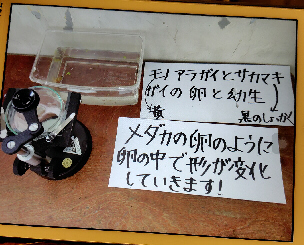 モノアラガイとサカマキ
ガイの卵と幼生
黄
黒のしょっかく
メダカの卵のように
卵の中で形が変化
していきます!